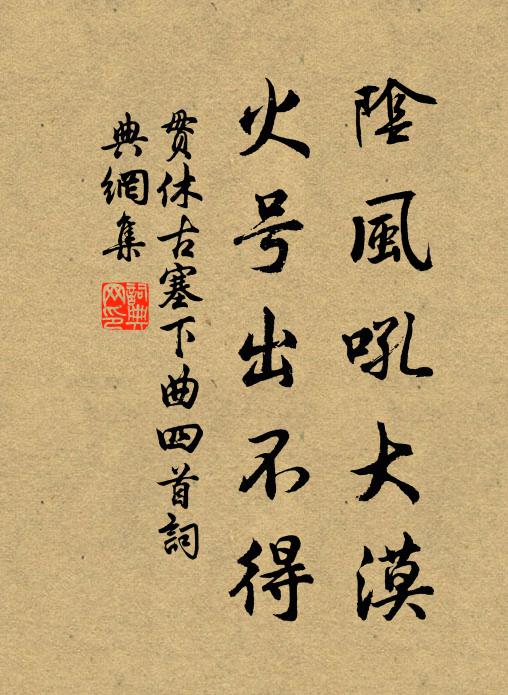 陰風吼大漠
火号出不得
贯休古塞下曲四首詞
典網集
詞典
网印